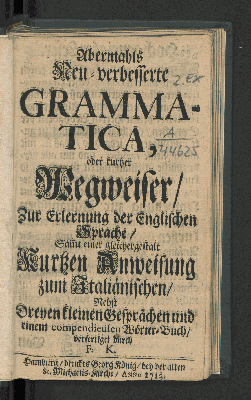 Abermahls
Neu-verbesserte
2 EX
GRAMMA-
TICA,
A
44625
oder kurtzer
Wegweiser/
Zur Erlernung der Englischen
Sprache/
Samt einer gleichergestalt
Kurtzen Anweisung
zum Italiänischen/
Nebst
Dreyen kleinen Gesprächen und
einem compendieusen Wörter-Buch/
verfertiget durch
P. K.
Hamburg/ druckts Georg König/ bey der alten
St. Michaelis-Kirche/ Anno 1715.